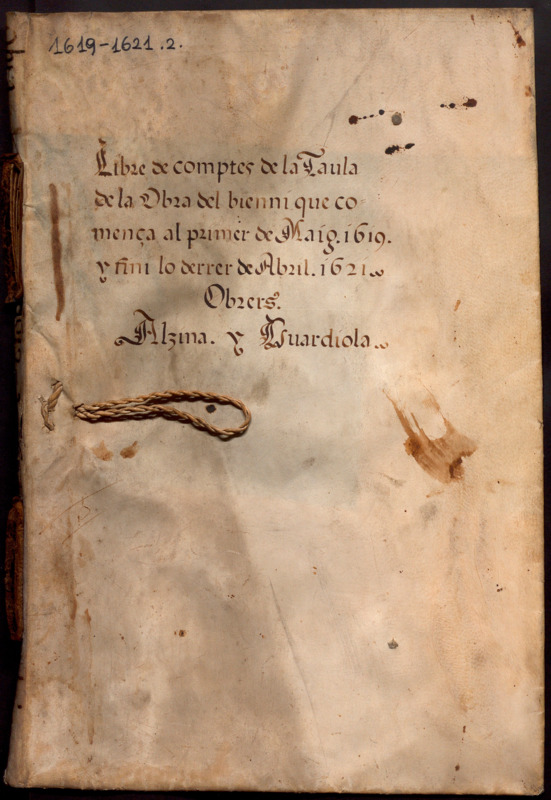 1619-1621.2.
Libre de comptes de la Taula
de la Obra del bienni que co
mença al primer de Maig.1619.
y fini lo derrer de Abril.1621.
Obrers.
Alzina. y Guardiola.